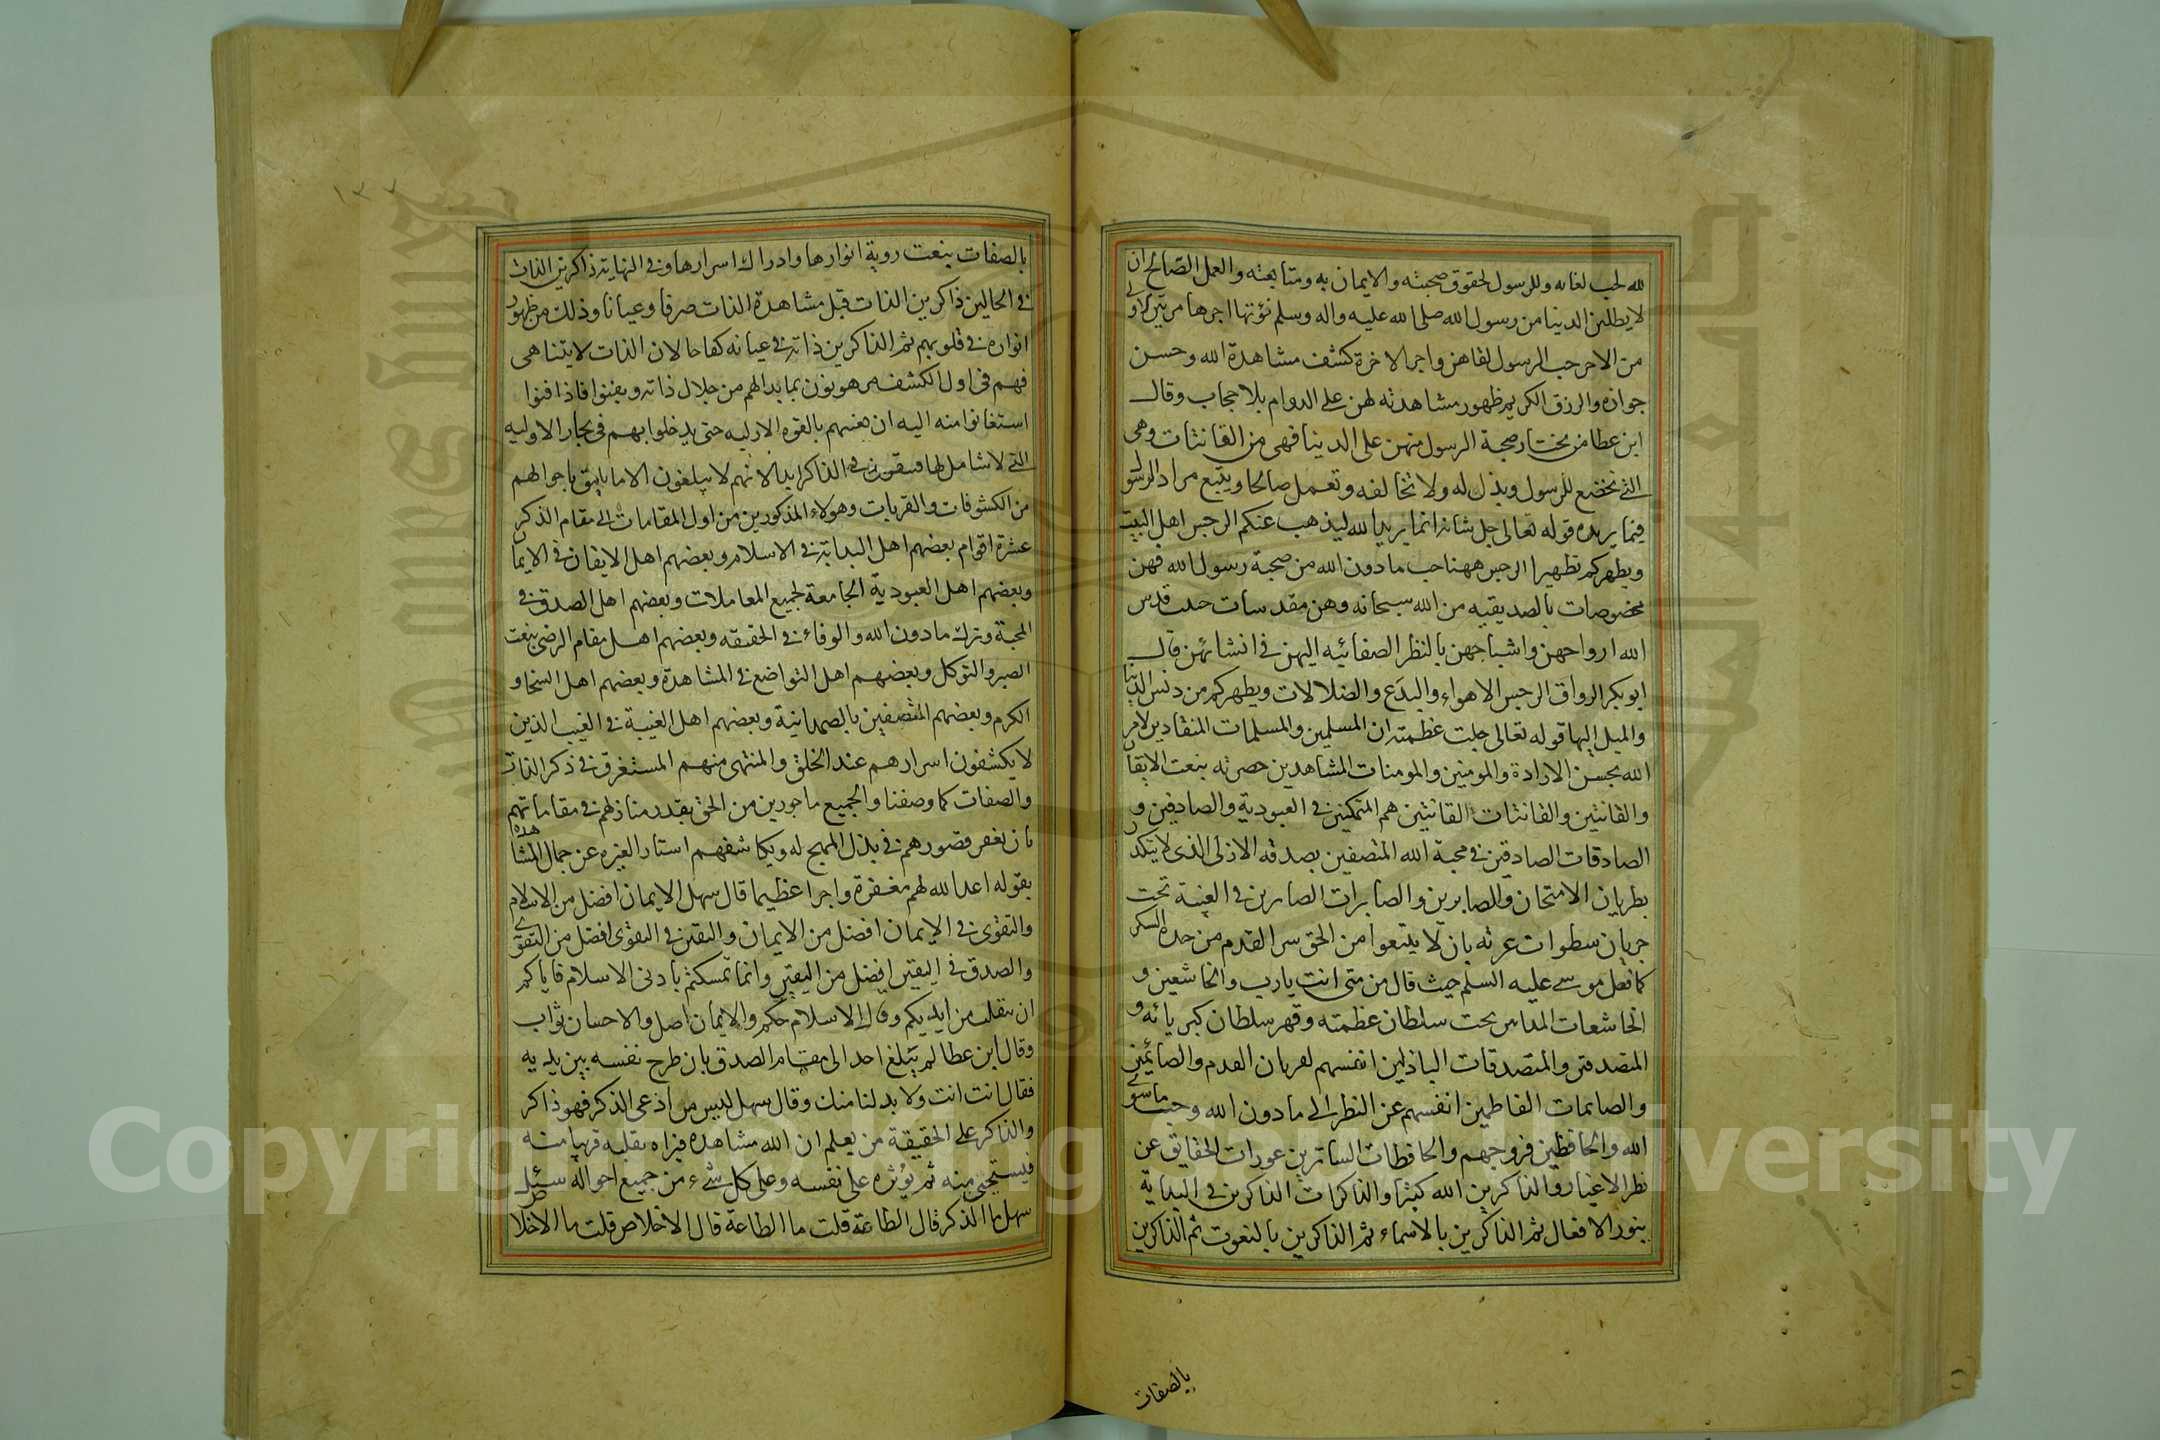 لله لحب لقائه وللرسول لحقوق صحبته والايمان به ومتابعته والعمل الصالح ان
لا يطلبن الدنيا من رسول الله صلى الله عليه واله وسلم نؤتها اجرها مرتين الاولى
من الاجر حب الرسول لقاهن واجر الاخرة كشف مشاهدة الله وحسن
جواره والرزق الكريم ظهور مشاهدته لهن على الدوام بلا حجاب وقال
ابن عطا من يختار صحبة الرسول منهن على الدنيا فهى من القانتات وهى
التى تخضع للرسول وبذل له ولا تخالفه وتعمل صالحا ويتبع مراد الرسول
فيما يريده قوله تعالى جل شانه انما يريد الله ليذهب عنكم الرجس اهل البيت
ويطهركم تطهيرا الرجس ههنا حب ما دون الله من صحبة رسول الله فهن
مخصوصات بالصديقيه من الله سبحانه وهن مقدسات حيث قدس
الله ارواحهن واشباحهن بالنظر الصفائيه اليهن فى انشائهن قال
ابو بكر الرواق الرجس الاهواء والبدع والضلالات ويطهركم من دنس الدنيا
والميل اليها قوله تعالى جلت عظمته ان المسلمين والمسلمات المنقادين لامر
الله بحسن الارادة والمومنين والمومنات المشاهدين حضرته بنعت الايقان
والقانتين والقانتات القانتين هم المتمكنين فى العبودية والصادقين و
الصادقات الصادقين فى محبة الله المتصفين بصدقه الازلى الذى لا يتكدر
بطريان الامتحان وللصابرين والصابرات الصابرين فى الغيبة تحت
جريان سطوات عزته بان لا يتبعوا من الحق سر القدم من حده السكر
كما فعل موسى عليه السلم حيث قال من متى انت يارب والخاشعين و
الخاشعات المدامن تحت سلطان عظمته وقهر سلطان كبريائه و
المتصدقين والمتصدقات الباذلين انفسهم لقربان القدم والصائمين
والصائمات الفاطمين انفسهم عن النظر الى ما دون الله وحب ما سوى
الله والحافظين فروجهم والحافظات الساترين عورات الحقايق عن
نظر الاغيار والذاكرين الله كثيرا والذاكرات الذاكرين فى البداية
بنور الافعال ثم الذاكرين بالاسماء ثم الذاكرين بالنعوت ثم الذاكرين
بالصفات
١٣٢
بالصفات بنعت روية انوارها وادراك اسرارها وفى النهاية ذاكرين الذات
فى الحالين ذاكرين الذات قبل مشاهدة الذات صرفا وعيانا وذلك من ظهور
انواره فى قلوبهم ثم الذاكرين ذاته فى عيانه كفاحا لان الذات لا يتناهى
فهم فى اول الكشف مرهوبون بما بدالهم من جلال ذاته ويفنوا فاذا فنوا
استغاثوا منه اليه ان بالقوه الازليه حتى يدخلوا بهم فى بحار الاوليه
التى لا ساحل لها فيبقون فى الذاكر ابدا لانهم لا يبلغون الا ما يليق باحوالهم
من الكشوفات والقربات وهولاء المذكورين من اول المقامات الى مقام الذكر
عشرة اقوام بعضهم اهل البداية فى الاسلام وبعضهم اهل الايقان فى الايما
وبعضهم اهل العبودية الجامعة لجميع المعاملات وبعضهم اهل الصدق فى
المحبة وترك ما دون الله والوفاء فى الحقيقه وبعضهم اهل مقام الرضى بنعت
الصبر والتوكل وبعضهم اهل التواضع فى المشاهدة وبعضهم اهل السخاو
الكرم وبعضهم المتصفين بالصمدانية وبعضهم اهل الغيبة فى الغيب الذين
لا يكشفون اسرارهم عند الخلق والمنتهى منهم المستغرق فى ذكر الذات
والصفات كما وصفنا والجميع ماجورين من الحق بقدر منازلهم فى مقاماتهم
بان يغفر قصورهم فى بذل المهج له ويكاشفهم استار الغيره عن جمال المشاهدة
بقوله اعد الله لهم مغفرة واجرا عظيما قال سهل الايمان افضل من الاسلام
والتقوى فى الايمان افضل من الايمان واليقين فى التقوى افضل من التقوى
والصدق فى اليقين افضل من اليقين وانما تمسكتم بادنى الاسلام فاياكم
ان ينفلت من ايديكم وقال الاسلام حكم والايمان اصل والاحسان ثواب
وقال ابن عطا لم يبلغ احد الى مقام الصدق بان طرح نفسه بين يديه
فقال انت انت ولا بد لنا منك وقال سهل ليس من ادعى الذكر فهو ذاكر
والذاكر على الحقيقة من يعلم ان الله مشاهده فيراه بقلبه قريبا منه
فيستحيى منه ثم يؤثره على نفسه وعلى كل شىء من جميع احواله سئل
سهل ما الذكر قال الطاعة قلت ما الطاعة قال الاخلاص قلت ما الاخلاص
Copyright © King Saud University